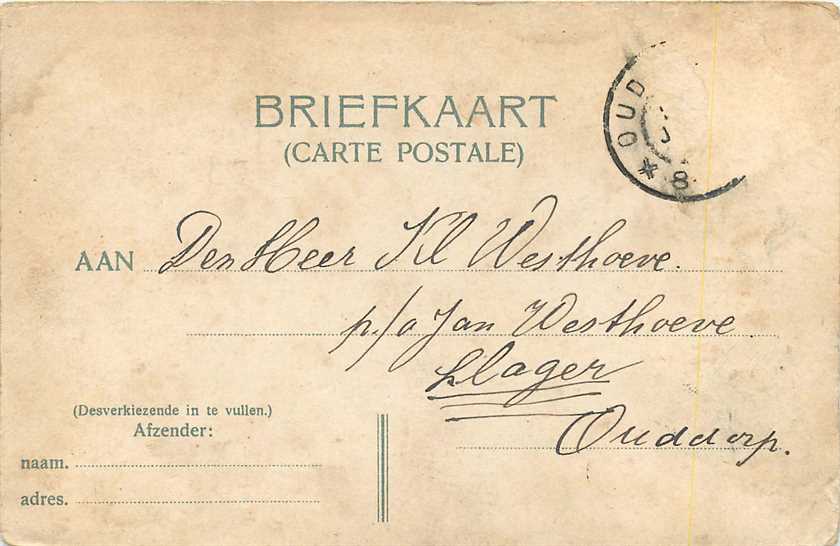 BRIEFKAART
(CARTE POSTALE)
OUD
* 8
AAN Den Heer Kl Westhoeve.
p/a Jan Westhoeve
Slager
Ouddorp.
(Desverkiezende in te vullen.)
Afzender:
naam.
adres.